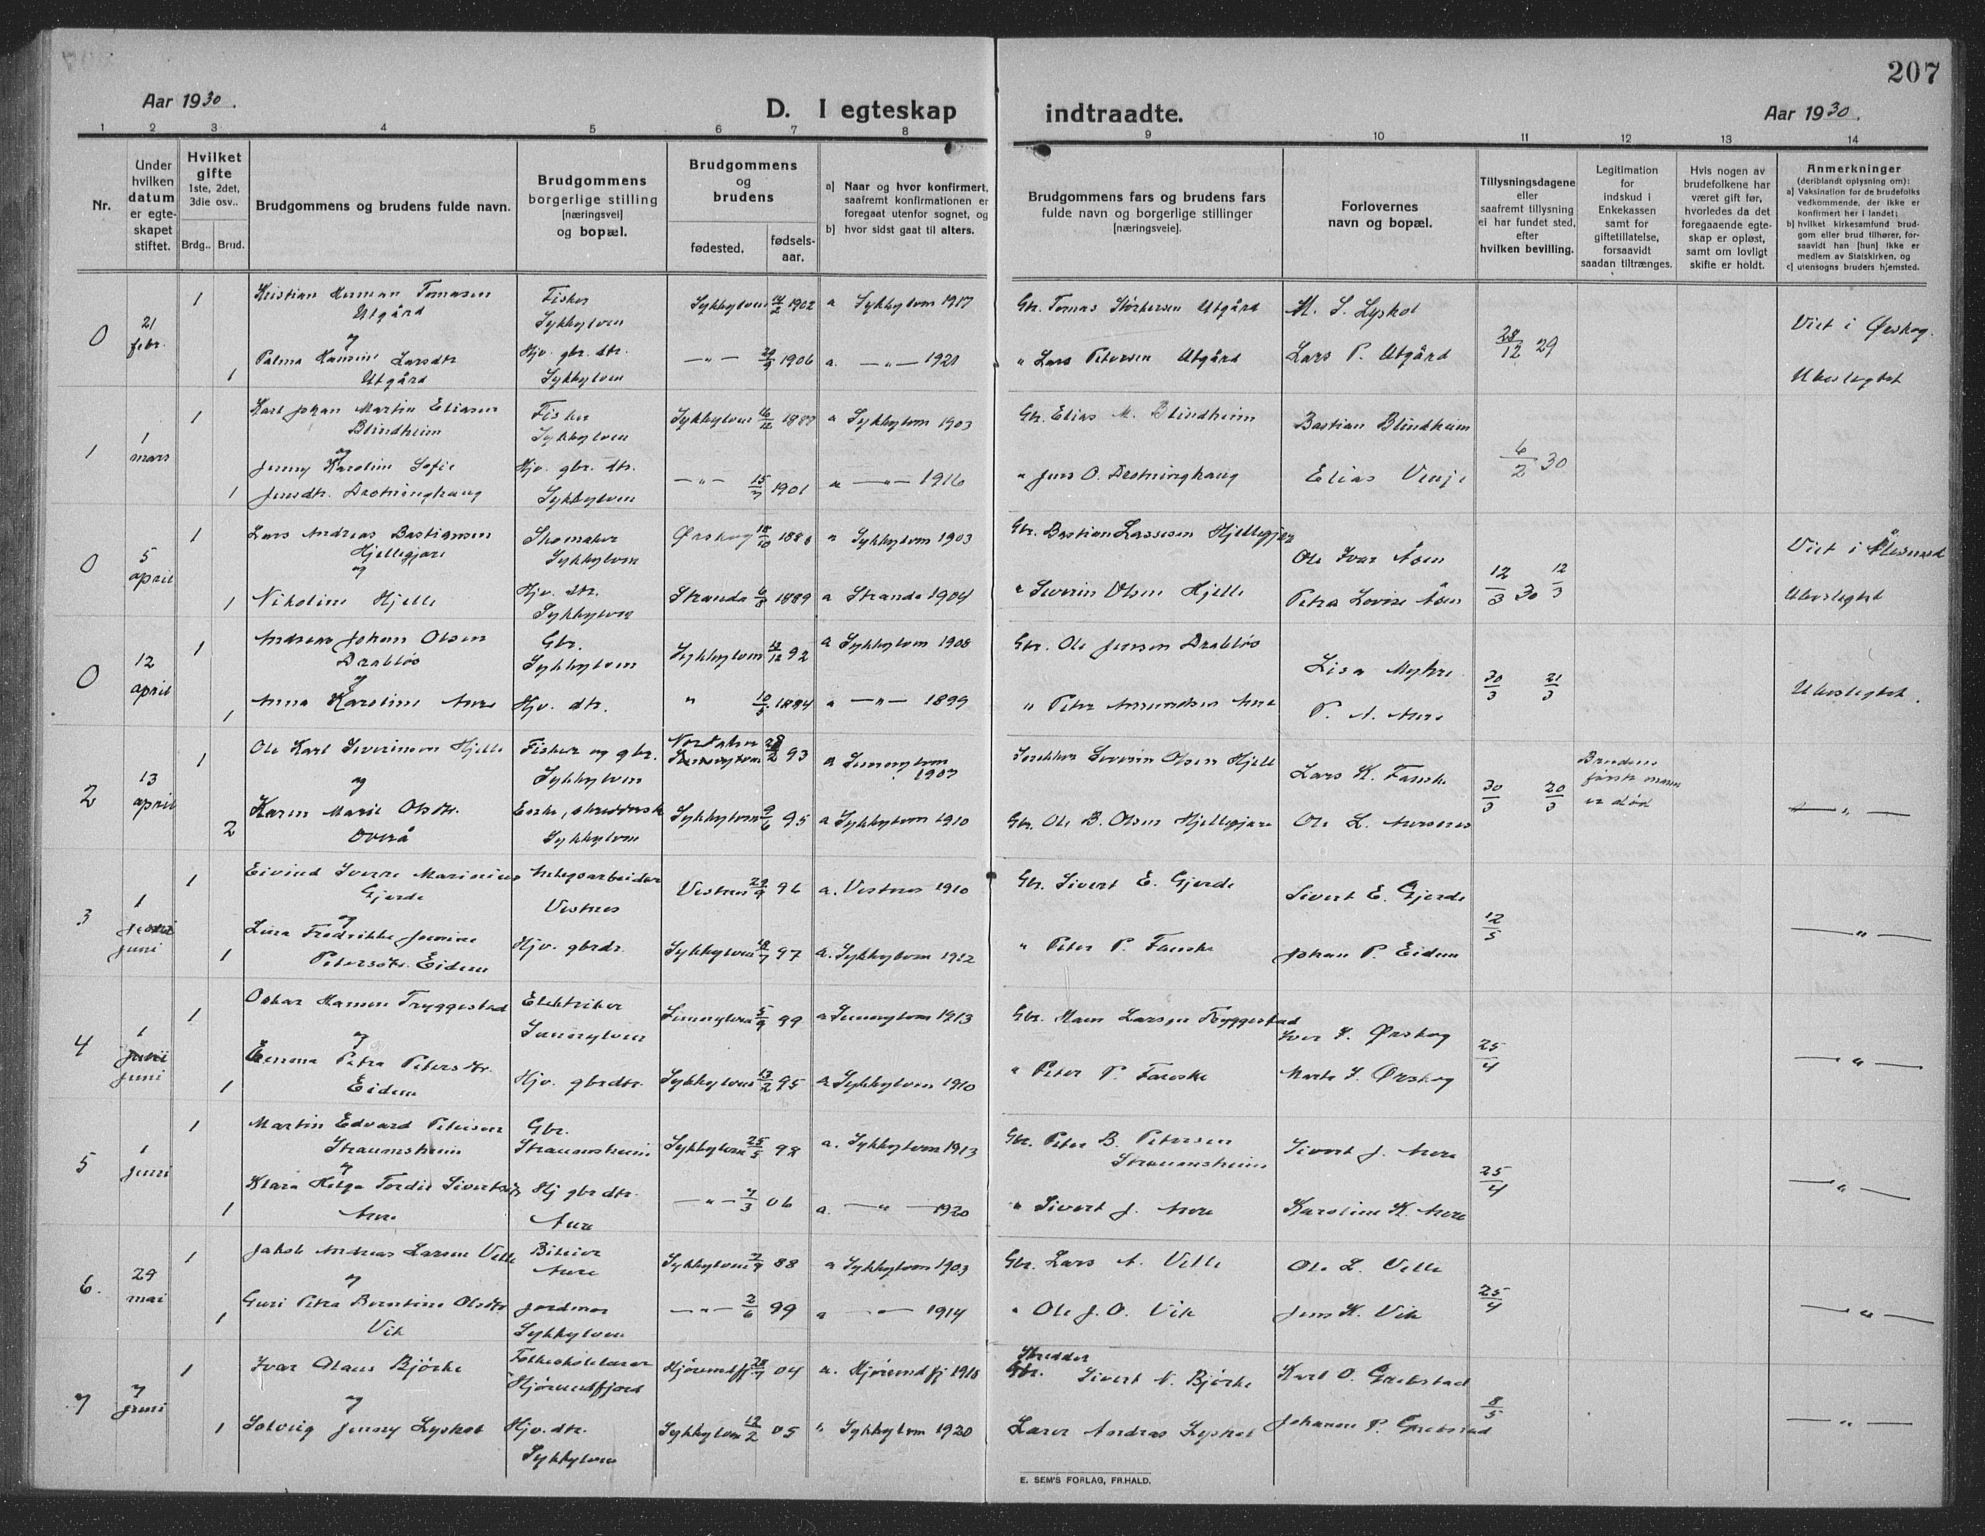 207
Aar 1930.
D. I egteskap
indtraadte.
Aar 1930.
1 2 3 4 5 6 7 8 9 10 11 12 13 14
Nr.
Under hvilken datum er egte- skapet stiftet.
Hvilket gifte
1ste, 2det, 3die osv..
Brdg.. Brud.
Brudgommens og brudens fulde navn.
Brudgommens borgerlige stilling [næringsvei] og bopæl.
Brudgommens og brudens
fødested. fødsels- aar.
a) Naar og hvor konfirmert, saafremt konfirmationen er foregaat utenfor sognet, og
b) hvor sidst gaat til alters.
Brudgommens fars og brudens fars fulde navn og borgerlige stillinger [næringsveie].
Forlovernes navn og bopæl.
Tillysningsdagene eller saafremt tillysning ei har fundet sted, efter hvilken bevilling.
Legitimation for indskud i Enkekassen samt for giftetillatelse, forsaavidt saadan tiltrænges.
Hvis nogen av brudefolkene har været gift før, hvorledes da det foregaaende egte- skap er opløst, samt om lovligt skifte er holdt.
Anmerkninger
(deriblandt oplysning om):
a) Vaksination for de brudefolks vedkommende, der ikke er konfirmert her i landet;
b) hvilket kirkesamfund brud- gom eller brud tilhører, for- saavidt han [hun] ikke er medlem av Statskirken, og
c) utensogns bruders hjemsted.
0 21 febr. 1 Kristian Herman Tomasen Utgård Fisker Sykkylven Sykkylven 1902 a Sykkylven 1917 Gbr. Tomas Utgård M. S. Lyshol 28/12 29 Viet i Ørskog.
og
1 Palma Hansine Larsdtr. Utgård Hjv. gbr. dtr. Sykkylven —"— 1906 a. —"— 1921 " Lars Petersen Utgård Lars P. Utgård Ubeslegtet
1 1 mars 1 Karl Johan Martin Eliasen Blindheim Fisker Sykkylven Sykkylven a Sykkylven 1903 Gbr. Elias M. Blindheim Bastian Blindheim 6/2 30
og
1 Jenny Karoline Sofie Jensdtr. Drotninghaug Hjv. gbr. dtr. Sykkylven —"— 15/7 1901 a —"— 1916 " Jens O. Drotninghaug Elias Vinje
0 5 april 1 Lars Andreas Bastiansen Hjellegjære Skomaker Sykkylven Ørskog a Sykkylven 1903 Gbr. Bastian Lassesen Hjellegjære Ole Ivar Åsen 12/3 30 12/3 Viet i Ålesund
og
1 Nikoline Hjelle Hjv. dtr. Sykkylven Stranda 1889 a Stranda 1904 " Severin Olsen Hjelle Petra Lovise Åsen Ubeslegtet
0 12 april 1 Andreas Johan Olsen Drabløs Gbr. Sykkylven Sykkylven 92 a Sykkylven 1908 Gbr. Ole Jensen Drabløs Lisa Myhre 30/3 21/3 Ubeslegtet.
og
1 Anna Karoline Aure Hjv. dtr. " 10/5 1884 a —"— 1899 " Peter Amundsen Aure P. A. Aure
2 13 april 1 Ole Karl Severinsen Hjelle Fisker og gbr. Sykkylven Norddalen 93 a Sunnylven 1907 Severin Olsen Hjelle Lars K. Fauske 30/3 20/3 Brudens første mann er død —"—
og
2 Karen Marie Olsdtr. Overå Enke, Sykkylven Sykkylven 9/6 95 a Sykkylven 1910 Gbr. Ole B. Olsen Hjellegjære Ole L. Aursnes
3 1 juni 1 Eivind Sverre Marinius Gjerde Anlegsarbeider Vestnes Vestnes 29/9 96 a. Vestnes 1910 Gbr. Sivert E. Gjerde Sivert E. Gjerde 12/5 —"—
og
1 Lina Fredrikke Jensine Petersdtr. Eidem Hjv. gbrdr. Sykkylven 18/7 97 a. Sykkylven 1912 " Peter P. Fauske Johan P. Eidem
4 1 juni 1 Oskar Hansen Tryggestad Elektriker Sunnylven Sunnylven 5/9 99 a Sunnylven 1913 Gbr. Hans Larsen Tryggestad Iver I. Ørskog 25/4 —"—
og
1 Emma Petra Petersdtr. Eidem Hjv. gbrdtr. Sykkylven 13/2 95 a Sykkylven 1910 " Peter P. Fauske Marta I. Ørskog
5 1 juni 1 Martin Edvard Petersen Straumsheim Gbr. Straumsheim Sykkylven 25/5 98 a. Sykkylven 1913 Gbr. Peter B. Petersen Straumsheim Sivert J. Aure 25/4 —"—
og
1 Klara Helga Tordis Sivertsdtr Aure Hj gbrdtr. Aure —"— 7/3 06 a. —"— 1920 " Sivert J. Aure Karoline K. Aure
6. 29 mai 1 Jakob Andreas Larsen Velle Bileier Aure Sykkylven 7/9 88 a Sykkylven 1903 Gbr. Lars A. Velle Ole L. Velle 25/4 —"—
og
1 Guri Petra Berntine Olsdtr Vik Jordmor Sykkylven —"— 2/6 99 a —"— 1914 " Ole J. O. Vik Jens K. Vik
7 7 juni 1 Ivar Olaus Bjørke Folkeskolelærer Hjørundfjord Hjørundfj 28/7 04 a. Hjørundfj 1918 Skredder Sivert N. Bjørke Karl O. Grebstad 8/5 —"—
og
1 Solveig Jenny Lyshol Hjv. dtr. Sykkylven Sykkylven 12/2 05 " Sykkylven 1920 Lærer Andreas Lyshol Johanne P. Grebstad
E. SEM'S FORLAG, FR.HALD.